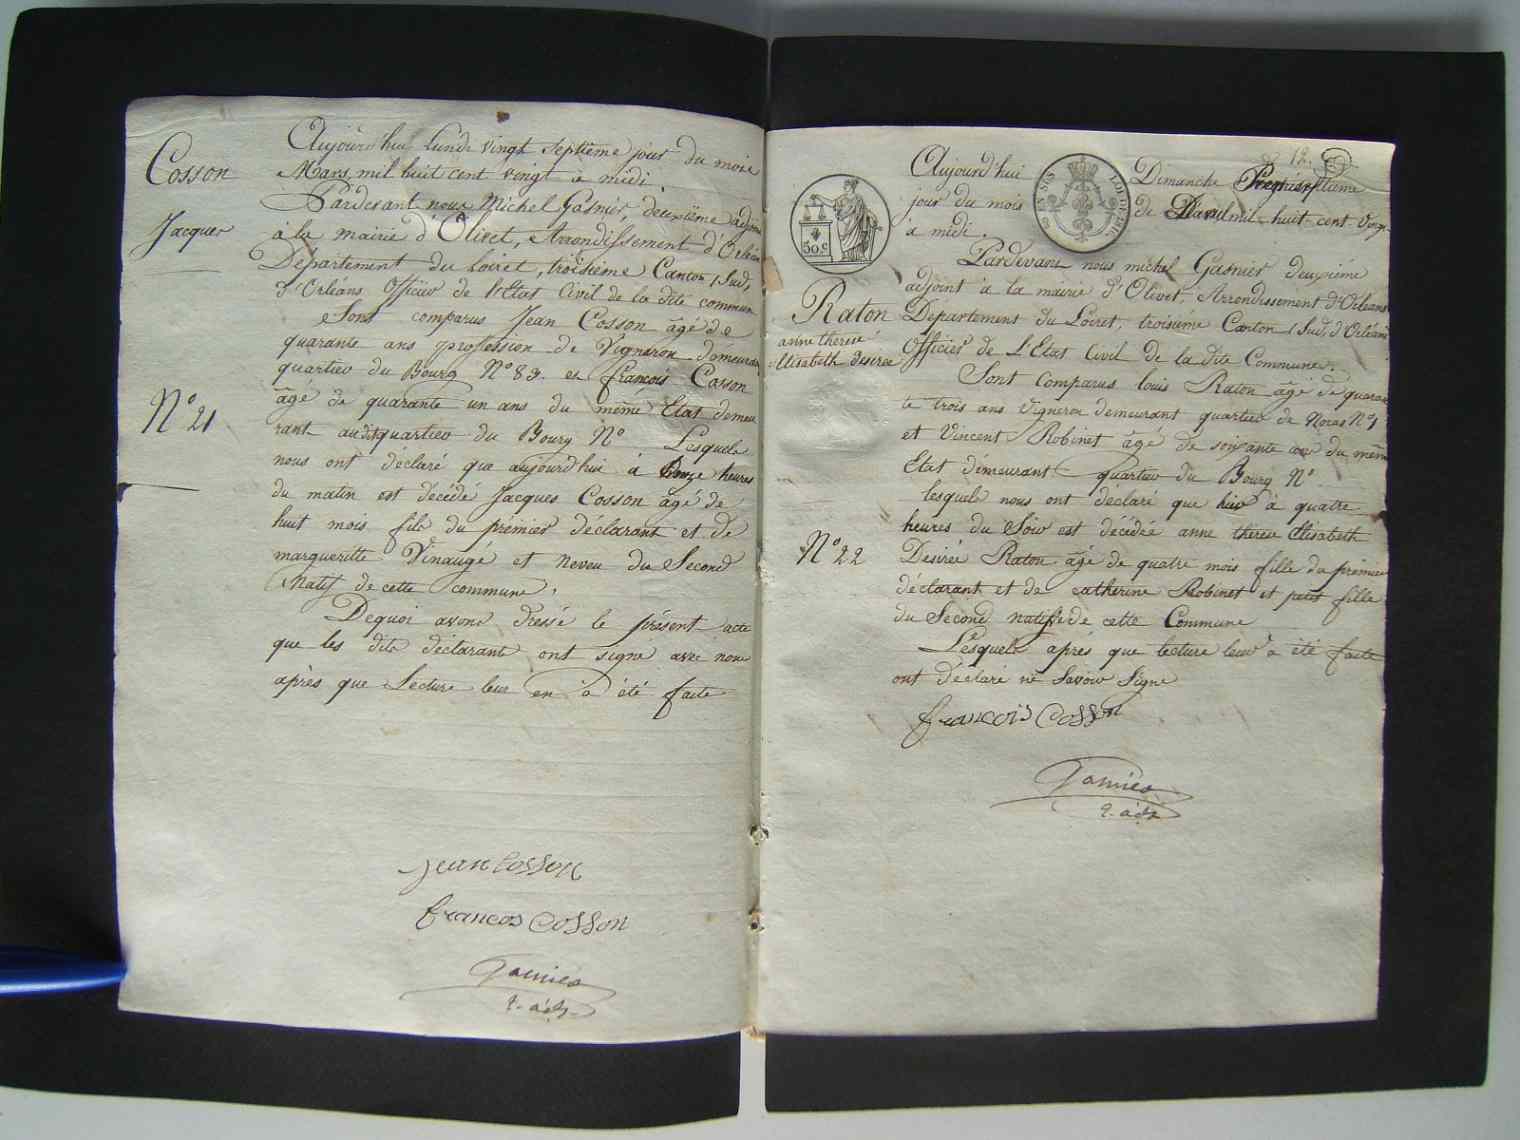 Cosson
Jacques
N° 21
Aujourd'hui Lundi vingt septième jour du mois
Mars, mil huit cent vingt à midi.
Pardevant nous Michel Gasnier, deuxième adjoint
à la mairie d'Olivet, Arrondissement d'Orléans
Département du Loiret, troisième Canton, Sud,
d'Orléans Officier de l'Etat Civil de la dite commune
Sont comparus Jean Cosson âgé de
quarante ans profession de Vigneron demeurant
quartier du Bourg N° 83. et françois Cosson
âgé de quarante un ans du même Etat demeu
rant audit quartier du Bourg N° Lesquels
nous ont déclaré que aujourd'hui à heures
du matin est décédé Jacques Cosson âgé de
huit mois fils du prémier déclarant et de
margueritte Vinauge et neveu du Second
Natif de cette commune.
Dequoi avons dressé le présent acte
que les dits déclarants ont signé avec nous
après que Lecture leur en a été faite
Jean Cosson
francos Cosson
Gasnier
2. adjt
12.
50 c
Raton
anne therese
Elisabeth desirée
N° 22
Aujourd'hui Dimanche
jour du mois de mil huit cent vingt
à midi.
Pardevant nous michel Gasnier deuxiéme
adjoint à la mairie d'Olivet, Arrondissement d'Orléans
Département du Loiret, troisiéme Canton, Sud, d'Orléans
Officier de L'Etat Civil de la dite Commune.
Sont comparus louis Raton âgé de quaran
te trois ans Vigneron demeurant quartier de N°
et Vincent Robinet âgé de soixante du même
Etat démeurant quartier du Bourg N°
lesquels nous ont déclaré que hier à quatre
heures du Soir est décédé anne therese Elisabeth
Desirée Raton âgé de quatre mois fille du prémier
déclarant et de catherine Robinet et petit fille
du Second native de cette Commune
Lesquels après que lecture leur a été faite
ont déclaré ne Savoir Signé
francois Cosson
Gasnier
2. adjt